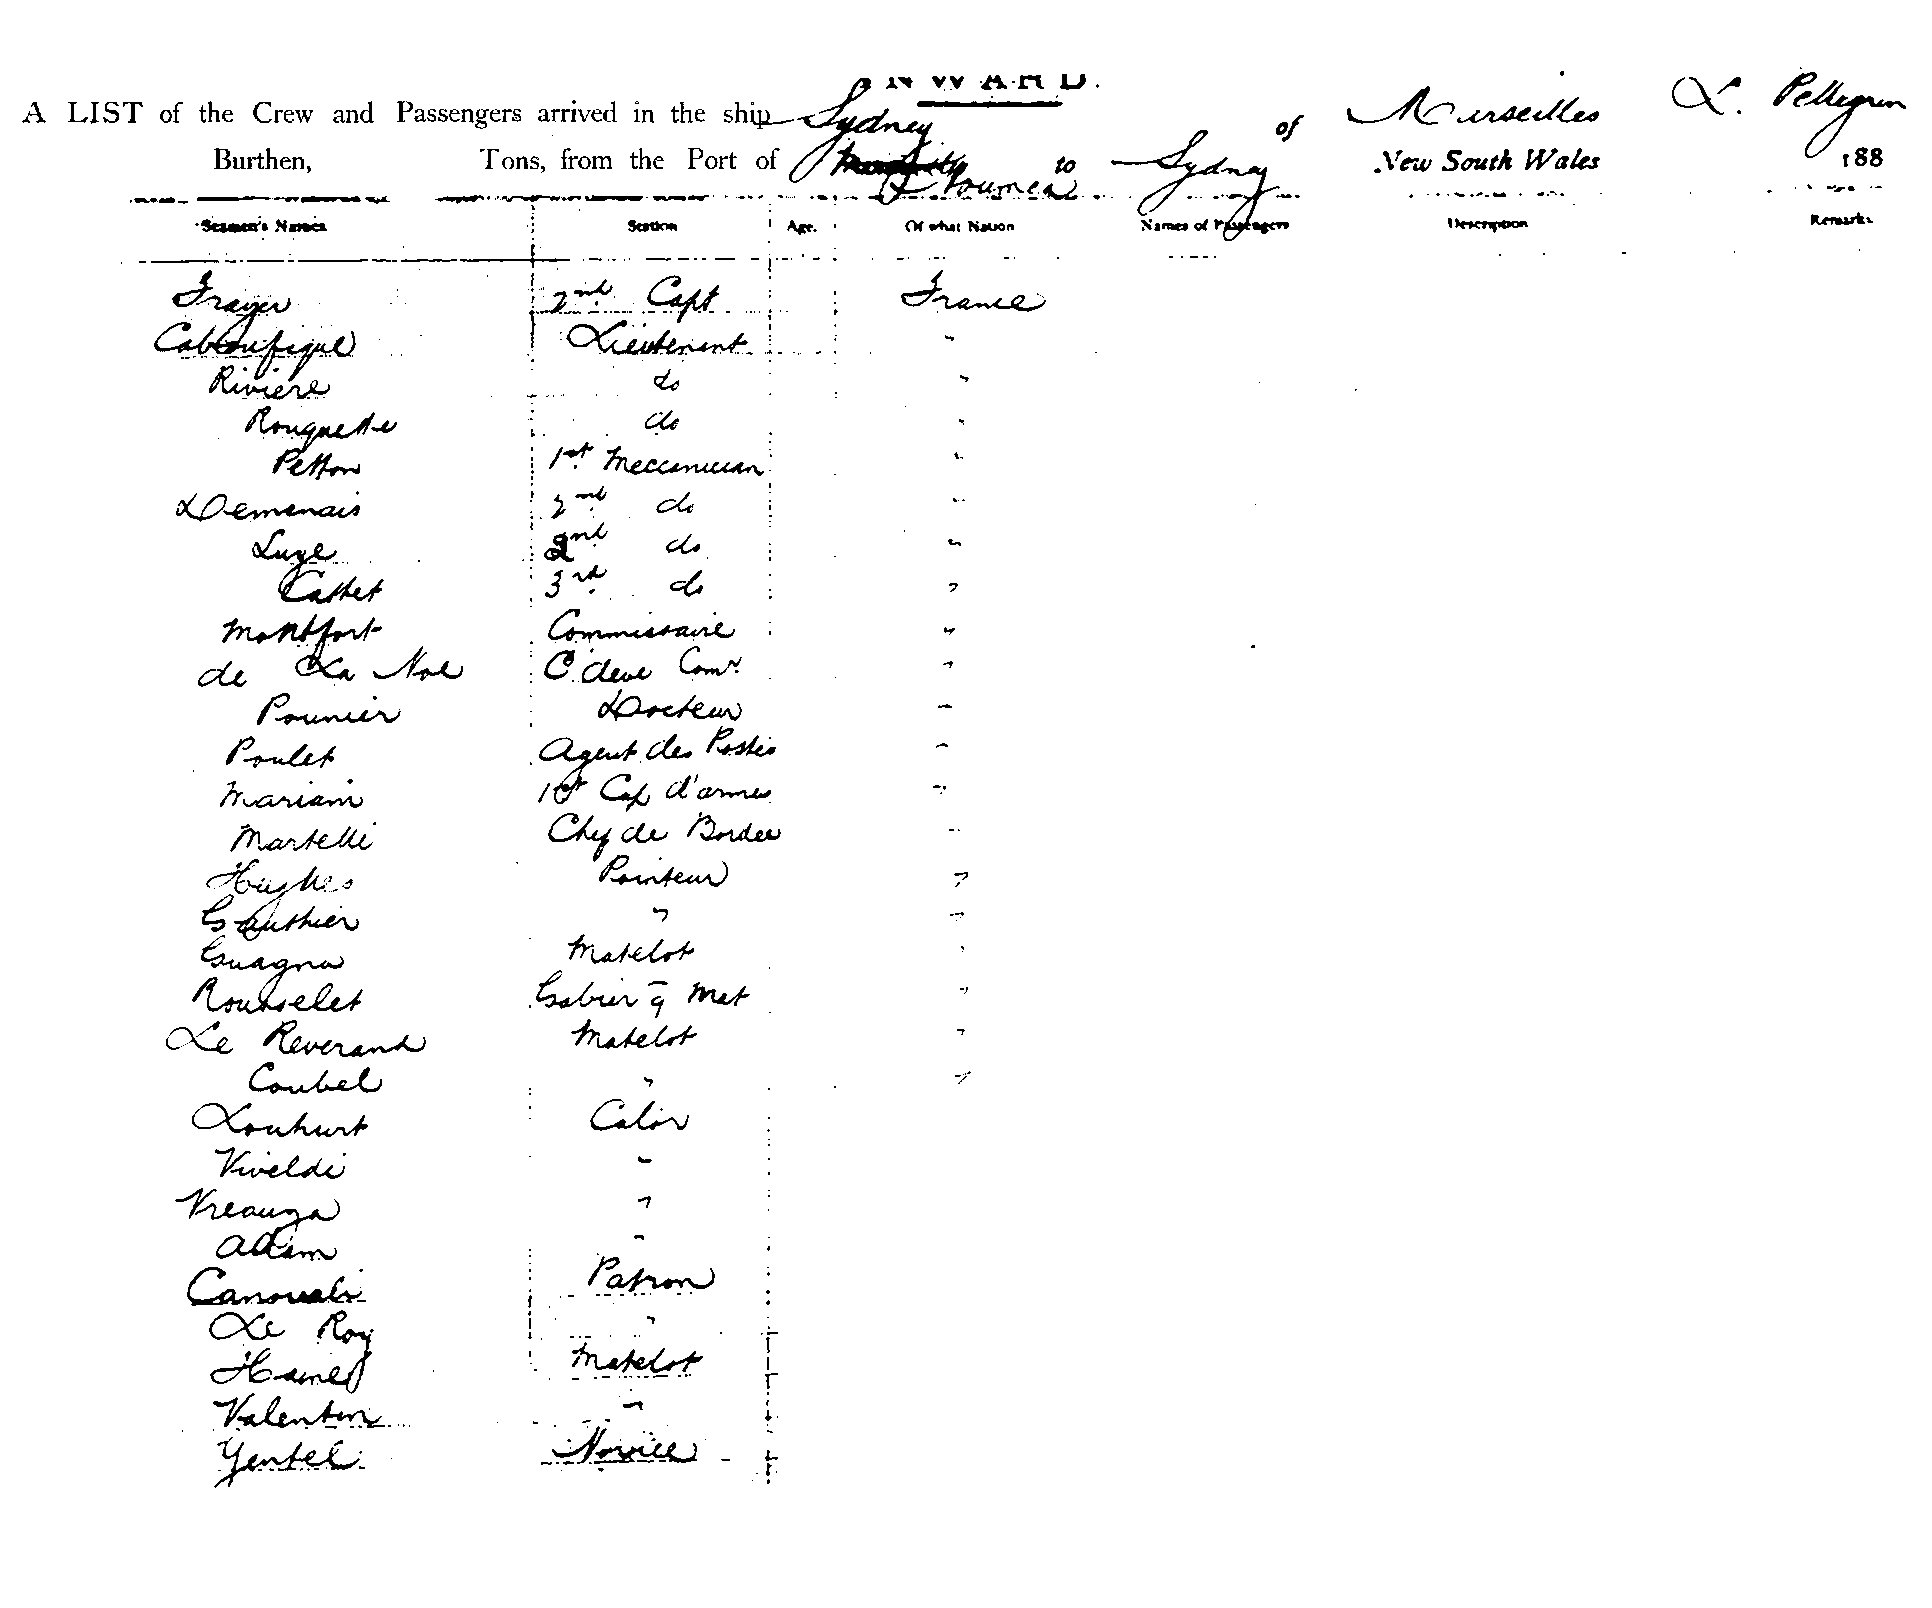 INWARD.
A LIST of the Crew and Passengers arrived in the ship Sydney of Marseilles L. Pellegrin
Burthen, Tons, from the Port of Noumea to Sydney New South Wales 188
Seamen's Names Station Age. Of what Nation Names of Passengers Description Remarks
Frager 2nd Capt France
Lieutenant "
Riviere do "
Rouquette do "
Petton 1st Meccanician "
Demenais 2nd do "
Luze 2nd do "
Castet 3rd do "
Montfort Commissaire "
de La Noe Com. "
Pounier Docteur "
Poulet Agent des Postes "
Mariani 1st Cap d'armes "
Martelli Chef de Bordee "
Hughes Pointeur "
Gauthier " "
Guagno Matelot "
Rousselet Gabier Mat "
Le Reverand Matelot "
Coubel " "
Louhurt Calor
Viveldi "
Vreauza "
Adam "
Patron
Le Roy "
Hamel Matelot
Valentin "
Yentel Novice